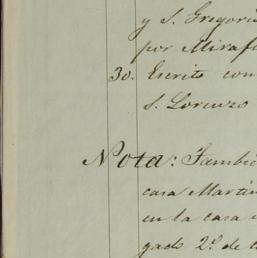 y S. Gregorio
por Miraf
30. Escrito con
S. Lorenzo
Nota: Tambié
casa Martin
en la casa
gado 2º de